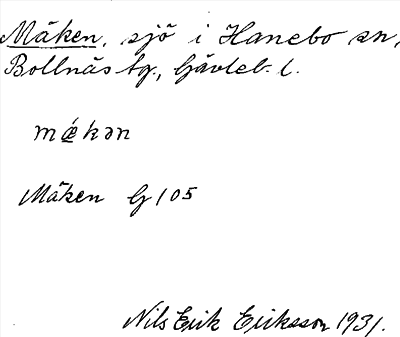 Mäken, sjö i Hanebo sn,
Bollnäs tg., Gävleb. l.
mǽkən
Mäken G 105
Nils Erik Eriksson 1931.